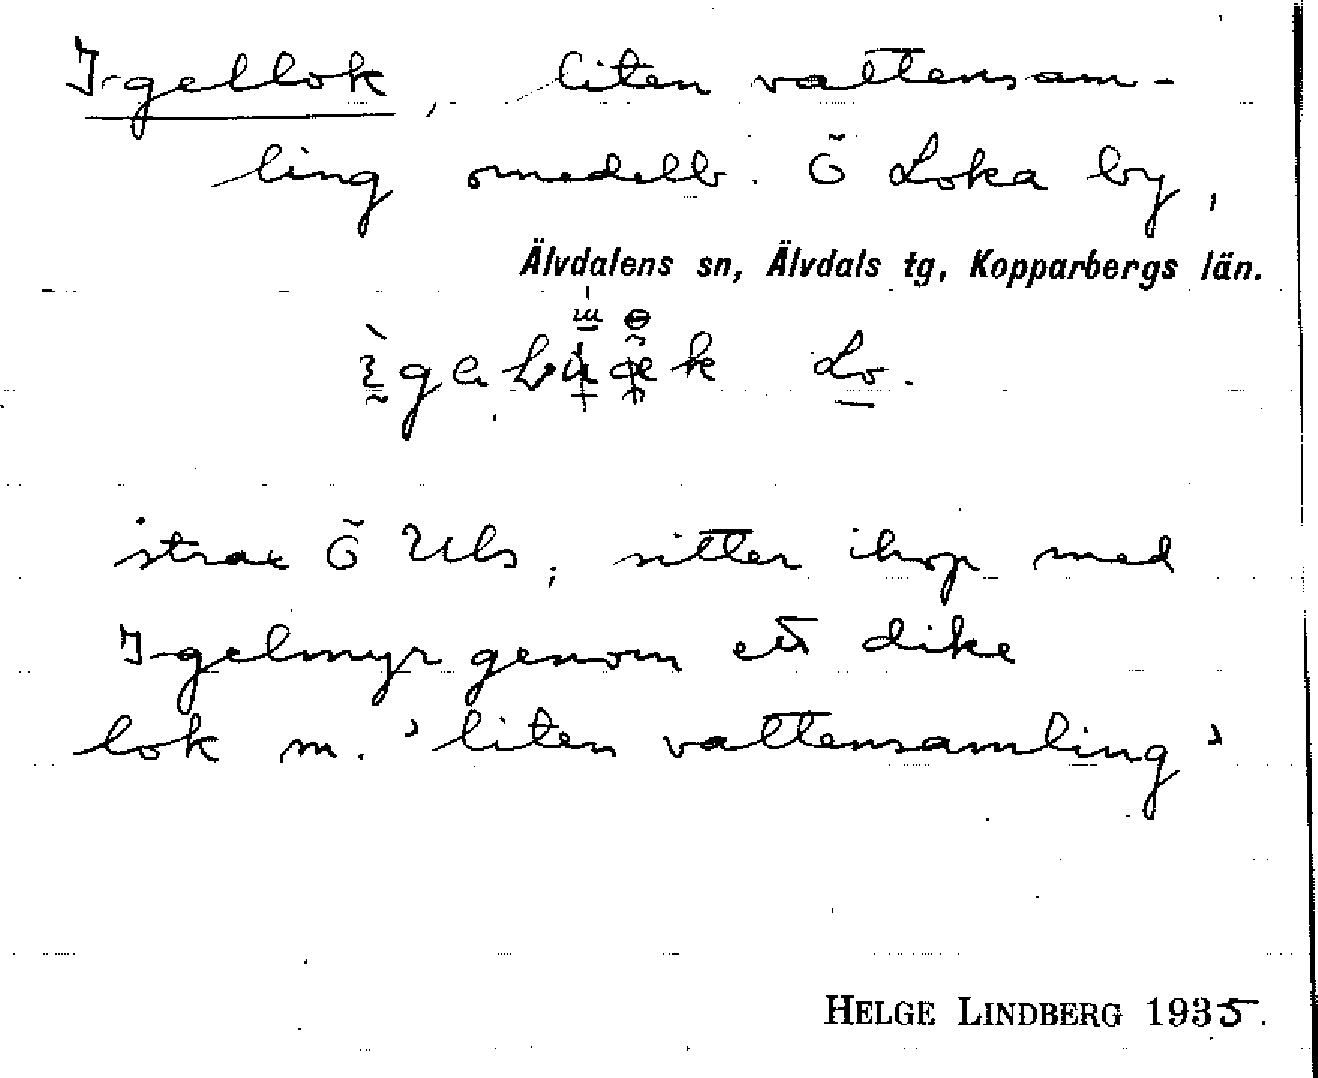 Igellok, liten vattensam-
ling omedelb. Ö Loka by,
Älvdalens sn, Älvdals tg, Kopparbergs län.
Lo.
strax Ö Uls, sitter ihop med
Igelmyr genom ett dike
lok m. 'liten vattensamling'
HELGE LINDBERG 1935.